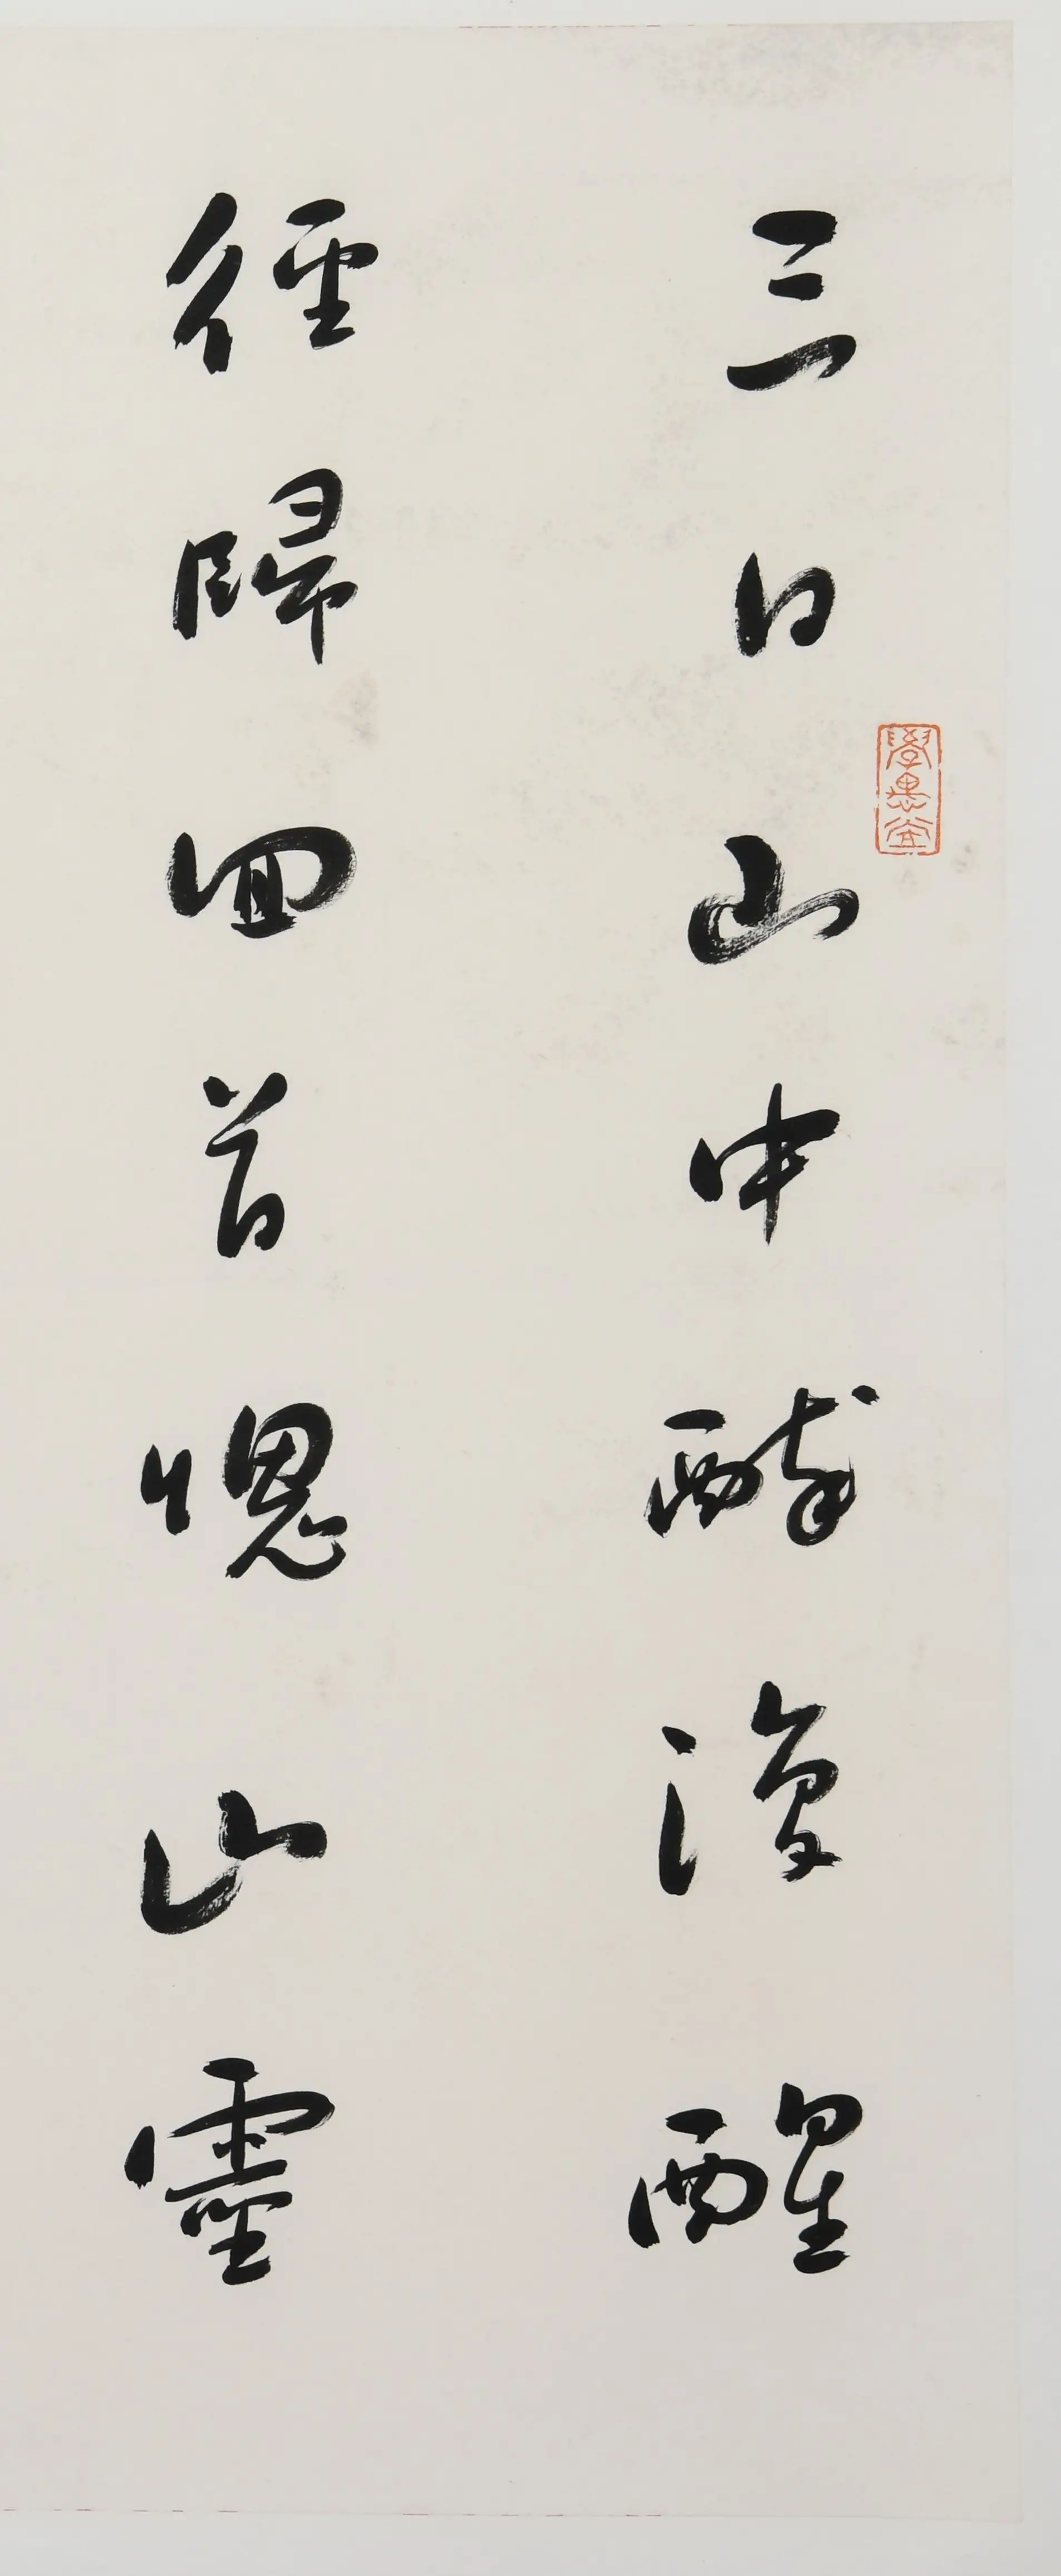 三日山中醉復醒
徑歸回首愧山靈
學愚堂